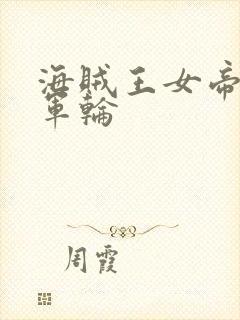 海賊王女帝
軍輪
周霞